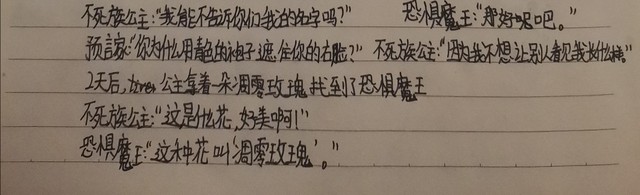 不死族公主:“我能不告诉你们我的名字吗?” 恐惧魔王:“那好吧。”
预言家“你为什么用青色的袖子遮住你的右脸?” 不死族公主:“因为我不想让别人看见我长什么样”
2天后, 公主拿着一朵凋零玫瑰找到了恐惧魔王
不死族公主:“这是什么花,好美啊!”
恐惧魔王:“这种花叫‘凋零玫瑰’。”